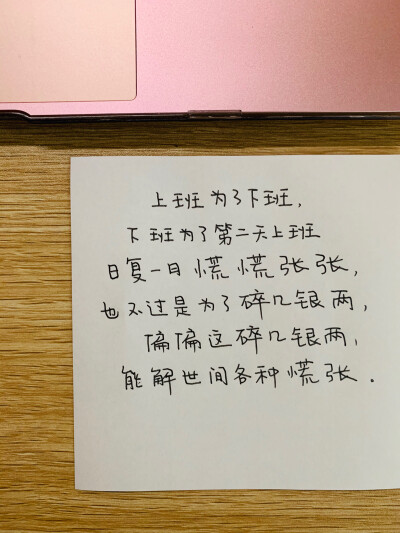 上班为了下班,
下班为了第二天上班
日复一日慌慌张张,
也不过是为了碎几银两,
偏偏这碎几银两,
能解世间各种慌张.